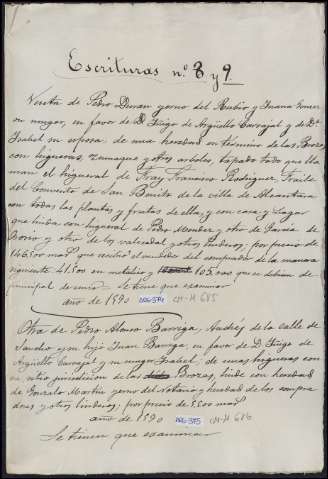 Escrituras nº 8 y 9
Venta de Pedro Duran yerno del Rubio y Juana Gomez
su mujer, en favor de D. Diego de Argüello Carvajal y de Dª
Isabel su esposa: de una heredad en término de las Brozas,
con higueras, zumaque y otros arboles, tapado todo que lla
man el higueral de Fray Francisco Rodriguez, Fraile
del Convento de San Benito de la villa de Alcantara
con todas las plantas y frutos de ella; y con casa y lagar
que linda con higueral de Pedro Mendez y otro de Garcia de
Osorio y otro de los y otros linderos; por precio de
146.500 mas que recibió el vendedor del comprador de la manera
siguiente 41.500 en metalico y 105.000 que se debian de
principal de censo. Se tiene que examinar
año de 1590 CM-H 685
Otra de Pedro Alonso Barriga, Andrés de la Calle de
Sancho y su hijo Juan Barriga, en favor de D. Diego de
Argüello Carvajal y su mujer Isabel, de unas higueras con
su sitio jurisdiccion de las Brozas, linde con heredad
de Gonzalo Martin yerno del Notario y heredad de los compra
dores y otros linderos; por precio de 5.500 mas
año de 1590 375 CM-H 686
Se tienen que examinar